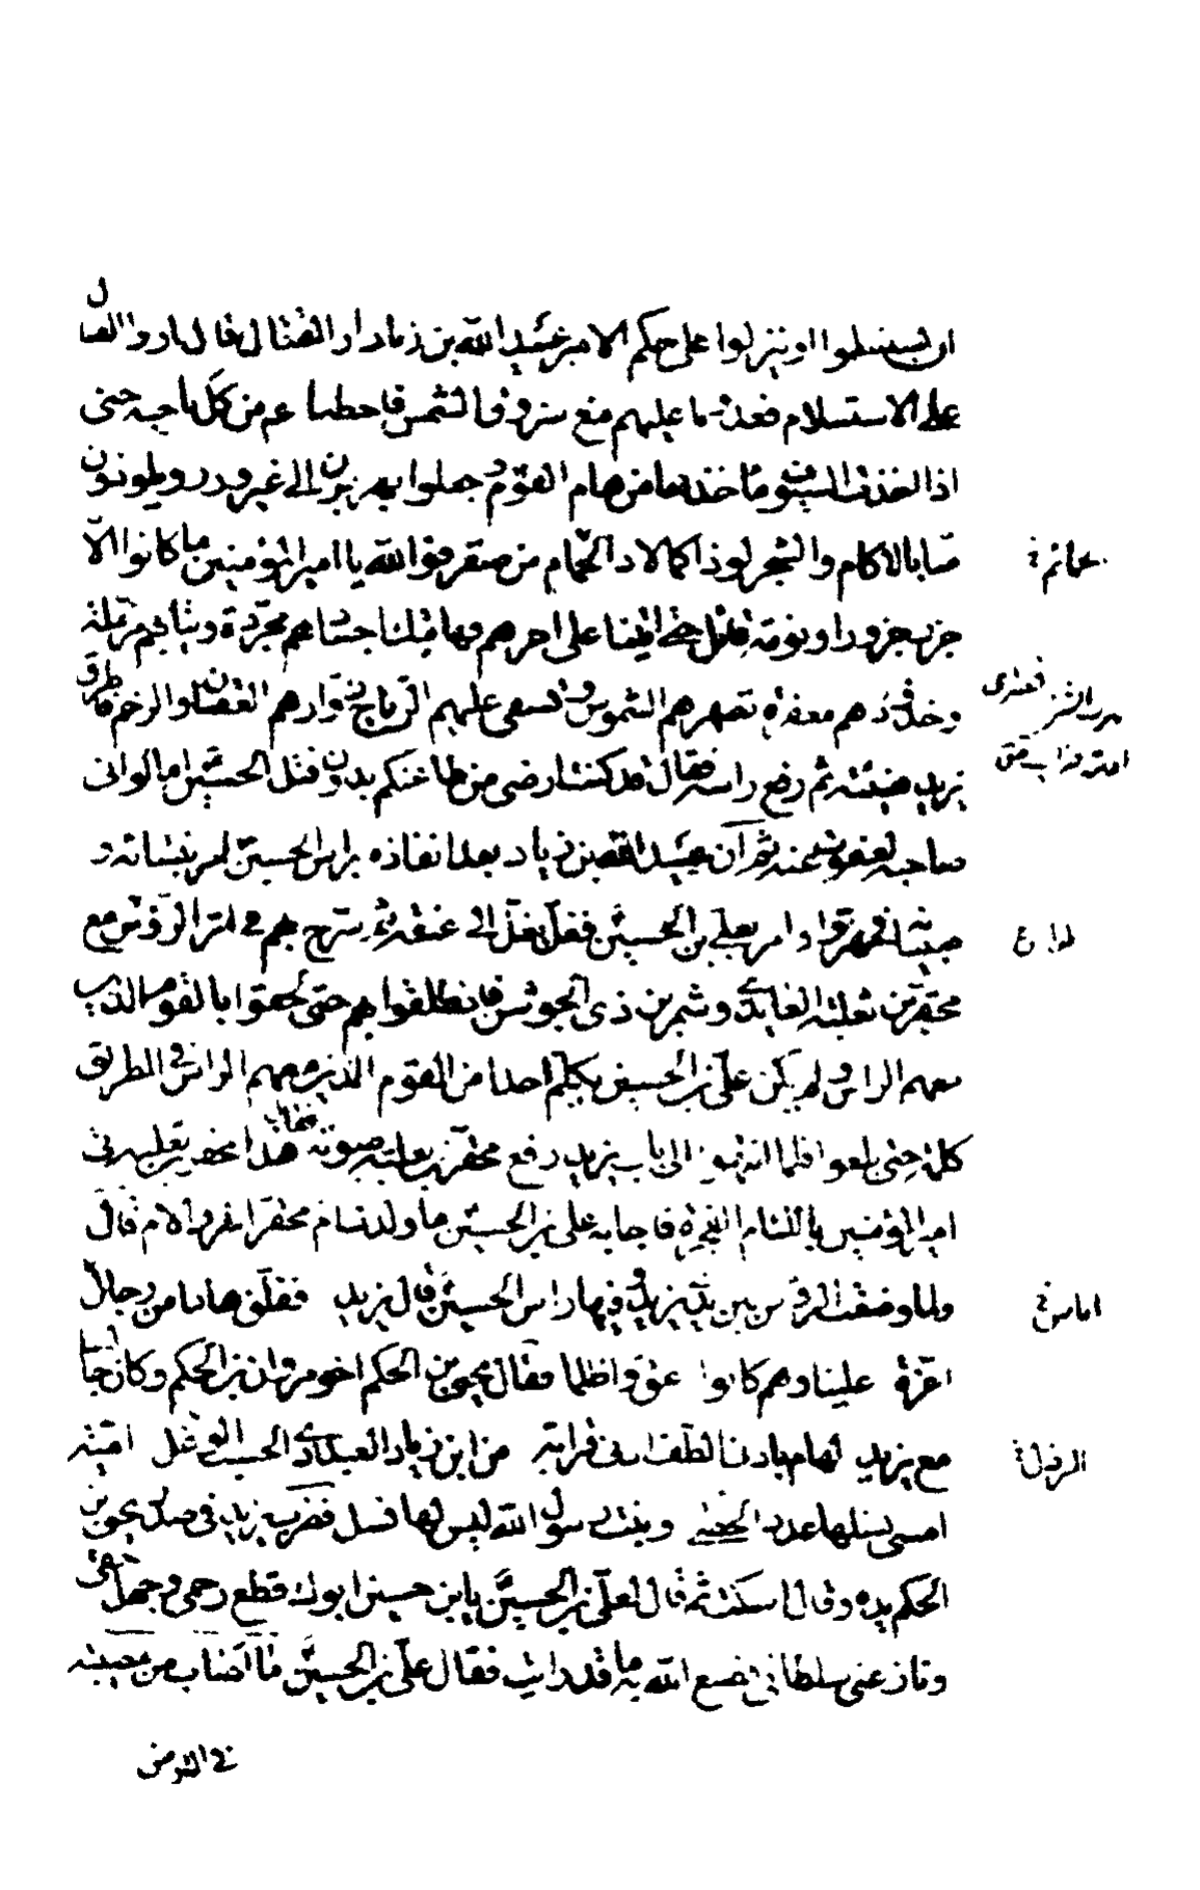 ان يستسلموا او ينزلوا على حكم الامير عبيد الله بن زياد او القتال فاختاروا القتال
على الاستسلام فعدونا عليهم مع شروق الشمس فاحطنا بهم من كل ناحية حتى
اذا اخذت السيوف مأخذها من هام القوم جعلوا يهربون الى غير وزر ويلوذون
منا بالاكام والشجر لوذا كما لاذ الحمام من صقر فو الله يا امير المؤمنين ما كانوا الا
جزر جزور او نومة قائل حتى اتينا على اخرهم فهاتيك اجسادهم مجردة وثيابهم مرملة
وخدودهم معفرة تصهرهم الشموس وتسفى عليهم الرياح زوارهم العقبان والرخم فاطرق
يزيد هنيئة ثم رفع راسه فقال قد كنت ارضى من طاعتكم بدون قتل الحسين اما لو انى
صاحبه لعفوت عنه ثم ان عبيد الله بن زياد بعد انفاذه براس الحسين امر بنسائه و
صبيانه فجهزوا وامر بعلي بن الحسين فغل بغل الى عنقه ثم سرح بهم في اثر الرؤس مع
محفر بن ثعلبة العايدي وشمر بن ذى الجوشن فانطلقوا بهم حتى لحقوا بالقوم الذين
معهم الراس ولم يكن علي بن الحسين يكلم احدا من القوم الذين معهم الراس في الطريق
كلمة حتى بلغوا فلما انتهوا الى باب يزيد رفع محفر بن ثعلبة صوته فقال هذا محفر بن ثعلبة اتى
امير المؤمنين باللئام الفجرة فاجابه علي بن الحسين ما ولدت ام محفر اشر والام قال
ولما وضعت الرؤس بين يدي يزيد وفيها راس الحسين قال يزيد نفلق هاما من رجال
اعزة علينا وهم كانوا اعق واظلما فقال يحيى بن الحكم اخو مروان بن الحكم وكان جالسا
مع يزيد لهام بادنى الطف ادنى قرابة من ابن زياد العبد ذي الحسب الوغل امية
امسى نسلها عدد الحصى وبنت رسول الله ليس لها نسل فضرب يزيد في صدر يحيى بن
الحكم بيده وقال اسكت ثم قال لعلي بن الحسين يا بن حسين ابوك قطع رحمى وجهل حقى
ونازعنى سلطانى فصنع الله به ما قد رايت فقال علي بن الحسين ما اصاب من مصيبة
في الارض